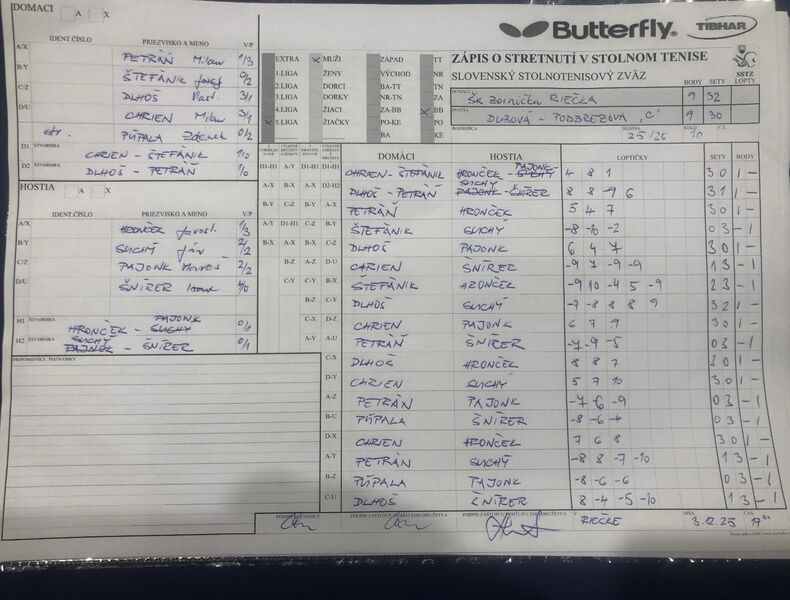 DOMACI A X
Butterfly. TIBHAR
IDENT.ČÍSLO PRIEZVISKO A MENO V/P
A/X PETRÁŇ Milan 1/3
B/Y ŠTEFÁNIK Jozef 0/2
C/Z DLHOŠ Vlast. 3/1
D/U CHRIEN Milan 3/1
str. PÚPALA Zdenek 0/2
D1 ŠTVORHRA CHRIEN - ŠTEFÁNIK 1/0
D2 ŠTVORHRA DLHOŠ - PETRÁŇ 1/0
HOSTIA A X
IDENT.ČÍSLO PRIEZVISKO A MENO V/P
A/X HRONČEK Jarosl. 1/3
B/Y SUCHÝ Ján 2/2
C/Z PAJONK 2/2
D/U ŠNÍRER 4/0
H1 ŠTVORHRA HRONČEK - SUCHÝ PAJONK 0/1
H2 ŠTVORHRA PAJONK SUCHÝ - ŠNÍRER 0/1
PRIPOMIENKY, POZNÁMKY
EXTRA X MUŽI ZÁPAD TT
1.LIGA ŽENY VÝCHOD NR
2.LIGA DORCI BA-TT TN
3.LIGA DORKY NR-TN ZA
4.LIGA ŽIACI ZA-BB X BB
X 5.LIGA ŽIAČKY PO-KE PO
BA KE
ZÁPIS O STRETNUTÍ V STOLNOM TENISE
SLOVENSKÝ STOLNOTENISOVÝ ZVÄZ
SSTZ
BODY SETY LOPTY
DOMÁCI ŠK BORNIČKA RIEČKA 9 32
HOSTIA DUBOVÁ - PODBREZOVÁ "C" 9 30
ROZHODCA SEZÓNA 25/26 KOLO 10 Č.Z.
DOMÁCI HOSTIA LOPTIČKY SETY BODY
CHRIEN - ŠTEFÁNIK HRONČEK - SUCHÝ PAJONK 4 8 1 3 0 1 -
DLHOŠ - PETRÁŇ PAJONK SUCHÝ - ŠNÍRER 8 8 -9 6 3 1 1 -
PETRÁŇ HRONČEK 5 4 7 3 0 1 -
ŠTEFÁNIK SUCHÝ -8 -6 -2 0 3 - 1
DLHOŠ PAJONK 6 4 7 3 0 1 -
CHRIEN ŠNÍRER -9 7 -9 -9 1 3 - 1
ŠTEFÁNIK HRONČEK -9 10 -4 5 -9 2 3 - 1
DLHOŠ SUCHÝ -7 -8 8 8 9 3 2 1 -
CHRIEN PAJONK 6 7 9 3 0 1 -
PETRÁŇ ŠNÍRER -7 -9 -5 0 3 - 1
C-X DLHOŠ HRONČEK 8 8 7 3 0 1 -
D-Y CHRIEN SUCHÝ 5 7 10 3 0 1 -
A-Z PETRÁŇ PAJONK -7 -6 -9 0 3 - 1
B-U PÚPALA ŠNÍRER -8 -6 -4 0 3 - 1
D-X CHRIEN HRONČEK 7 6 8 3 0 1 -
A-Y PETRÁŇ SUCHÝ -8 8 -7 -10 1 3 - 1
B-Z PÚPALA PAJONK -8 -6 -6 0 3 - 1
C-U DLHOŠ ŠNÍRER 8 -4 -5 -10 1 3 - 1
PODPIS ROZHODCU PODPIS ZÁSTUPCU DOMÁCEHO DRUŽSTVA PODPIS ZÁSTUPCU HOSŤUJÚCEHO DRUŽSTVA V RIEČKE DŇA 3.12.25 ČAS